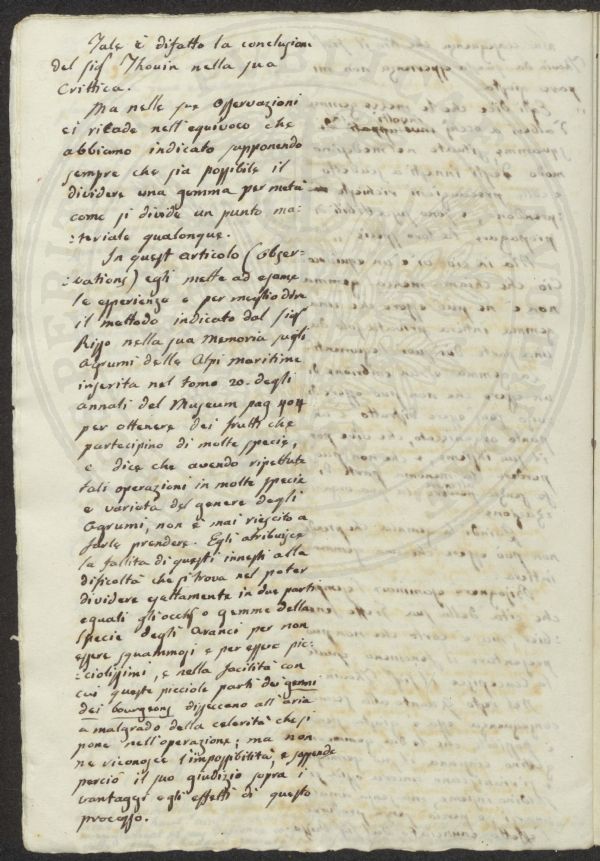 Tale è difatto la conclusione
del sig.r Thouin nella sua
Crittica.
Ma nelle sue osservazioni
ei ricade nell'equivoco che
abbiamo indicato supponendo
sempre che sia possibile il
dividere una gemma per metà
come si divide un punto ma-
:teriale qualonque.
In quest articolo (obser-
:vations) egli mette ad esame
le esperienze o per meglio dire
il mettodo indicato dal sig.r
Risso nella sua Memoria sugli
Agrumi delle Alpi maritime
inserita nel tomo 20. degli
annali del Museum pag 404
per ottenere dei frutti che
partecipino di molte specie,
e dice che avendo ripettute
tali operazioni in molte specie
e varietà del genere degli
Agrumi, non è mai riescito a
farle prendere. Egli attribuisce
la fallita di questi innesti alla
dificoltà che si trova nel poter
dividere esattamente in due parti
eguali gli occhj o gemme della
specie degli Aranci per non
essere squammosi e per essere pic-
:ciolissimi, e nella facilità con
cui queste picciole parti dei gemmi
dei bourgeons disseccano all'aria
a malgrado della celerità che si
pone nell'operazione; ma non
ne riconosce l'impossibilità, e sospende
perciò il suo giudizio sopra i
vantaggi e gli effetti di questo
processo.